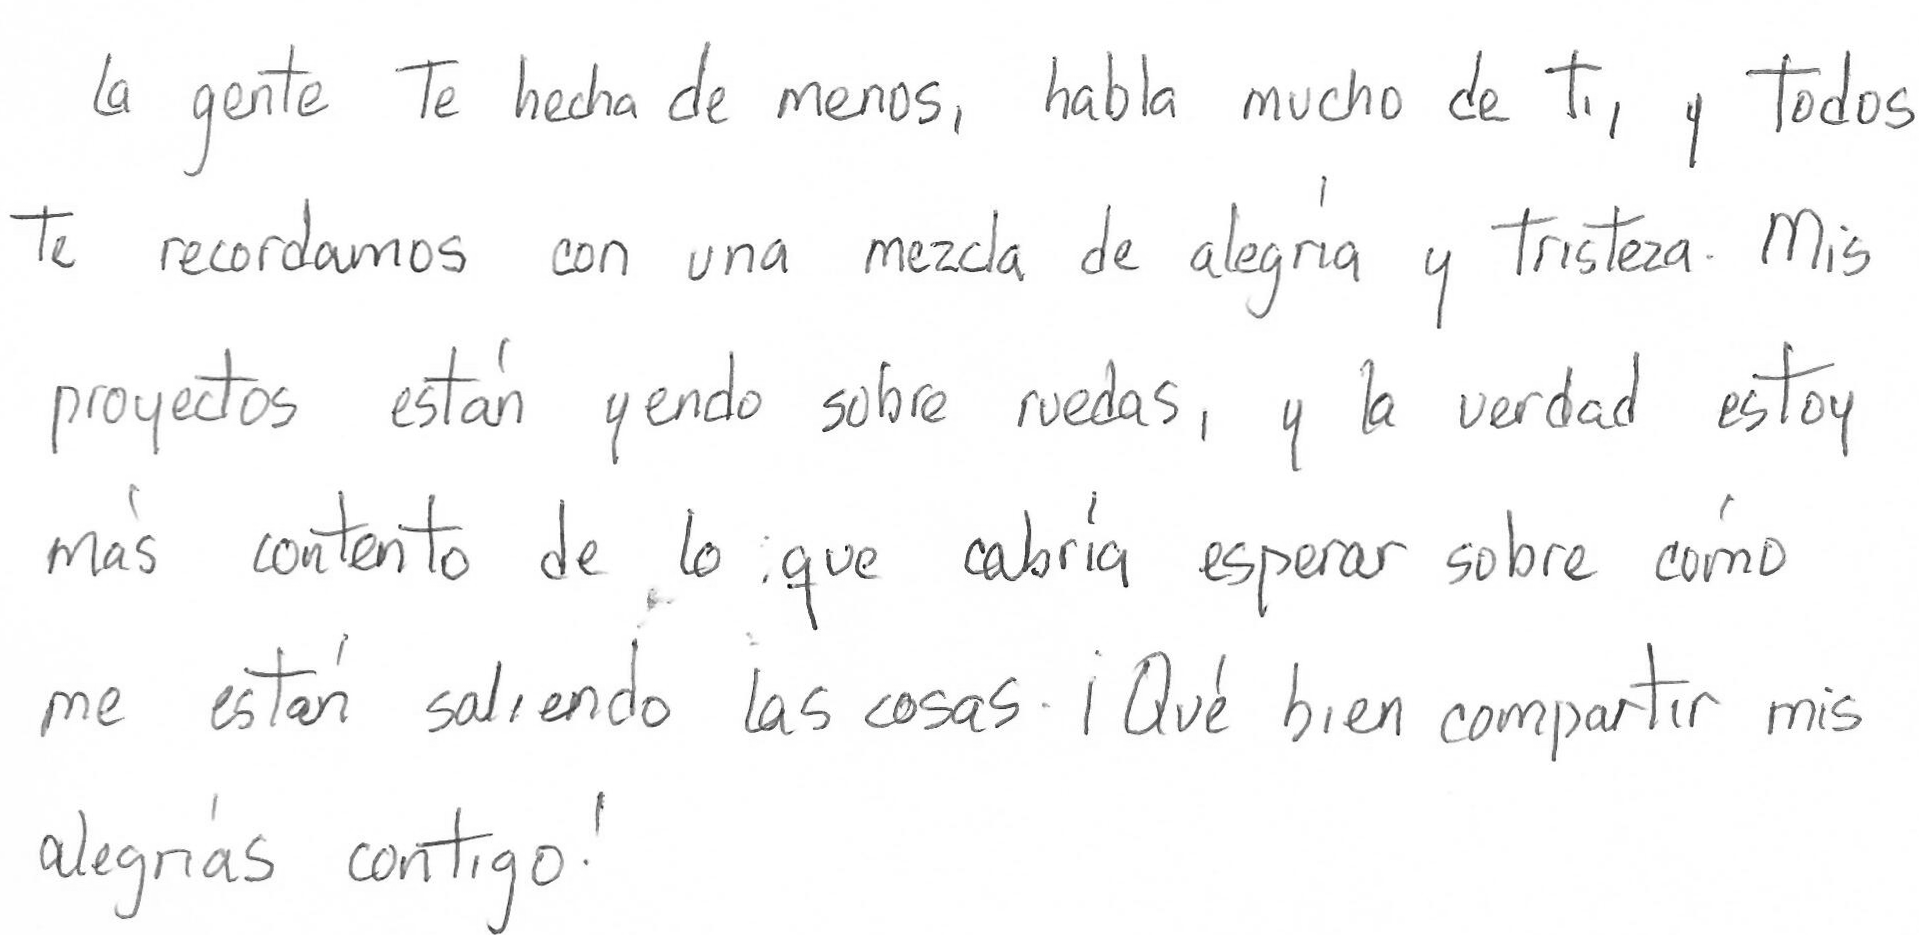 La gente te hecha de menos, habla mucho de ti, y todos
te recordamos con una mezcla de alegría y tristeza. Mis
proyectos están yendo sobre ruedas, y la verdad estoy
más contento de lo que cabría esperar sobre cómo
me están saliendo las cosas. ¡Qué bien compartir mis
alegrías contigo!